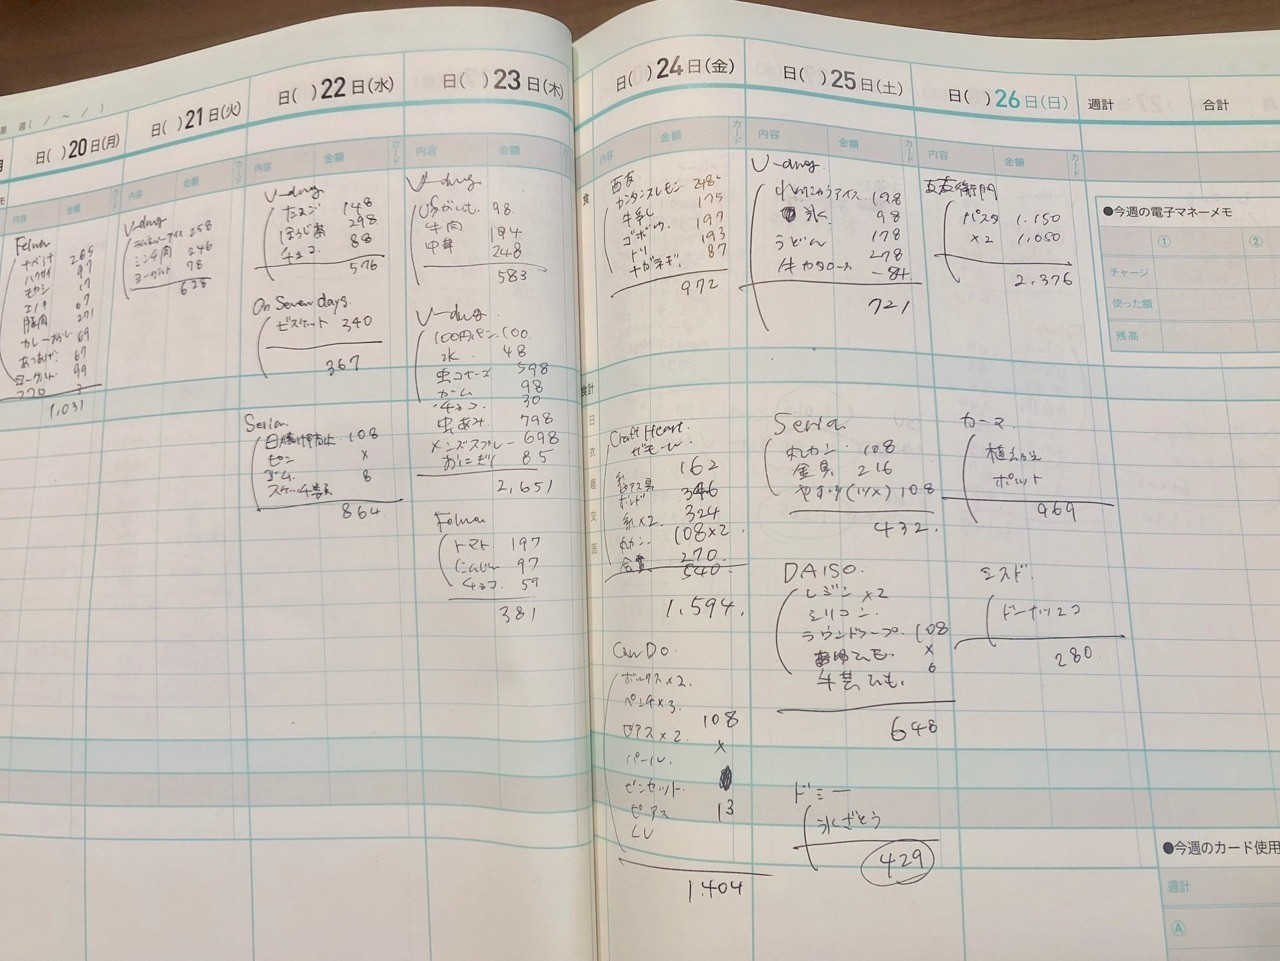 第 週( / ~ / )
日( )20日(月)
内容 金額 カード
Felna
ナベつゆ 265
ハクサイ 97
モヤシ 17
豚肉 271
69
あつあげ 67
ヨーグルト 99
フクロ 3
1,031
日( )21日(火)
内容 金額 カード
V-drug
258
ミンチ肉 246
ヨーグルト 98
628
日( )22日(水)
内容 金額 カード
V-drug
たまご 148
ほうじ茶 298
チョコ 88
576
On Seven days
ビスケット 340
367
Seria
日焼け防止 108
ピン ×
ゴーム 8
864
日( )23日(木)
内容 金額 カード
V-drug
98
牛肉 194
中華 248
583
V-drug
100円パン 100
氷 48
虫コナーズ 598
ガーム 98
チョコ 30
虫あみ 798
メンズスプレー 698
おにぎり 85
2,651
Felna
トマト 197
にんじん 97
チョコ 59
381
日( )24日(金)
内容 金額 カード
食
西友
カンタン酢レモン 248
牛乳 175
ゴボウ 197
トリ 193
ナガネギ 87
972
食計
日
衣
交
医
Craft Heart
162
ピアス具 346
ボンド 324
糸×2 108×2
丸カン 270
金具 540
1,594.
CanDo
ボックス×2
ペンチ×3
ピアス×2 108
パール ×
ピンセット
ピアス 13
LV
1,404
日( )25日(土)
内容 金額 カード
V-drug
アイス 198
氷 98
うどん 178
牛カタロース 278
-84
721
Seria
丸カン 108
金具 216
やすり(ツメ) 108
432
DAISO
レジン×2
シリコン
ラウンドテープ 108
ひも ×
手芸ひも 6
648
ドミー
氷ざとう
429
日( )26日(日)
内容 金額 カード
五右衛門
パスタ 1.150
×2 1.050
2.376
カーマ
植え
ポット
969
ミスド
ドーナツ2コ
280
週計
合計
●今週の電子マネーメモ
① ②
チャージ
使った額
残高
●今週のカード使用
週計
Ⓐ